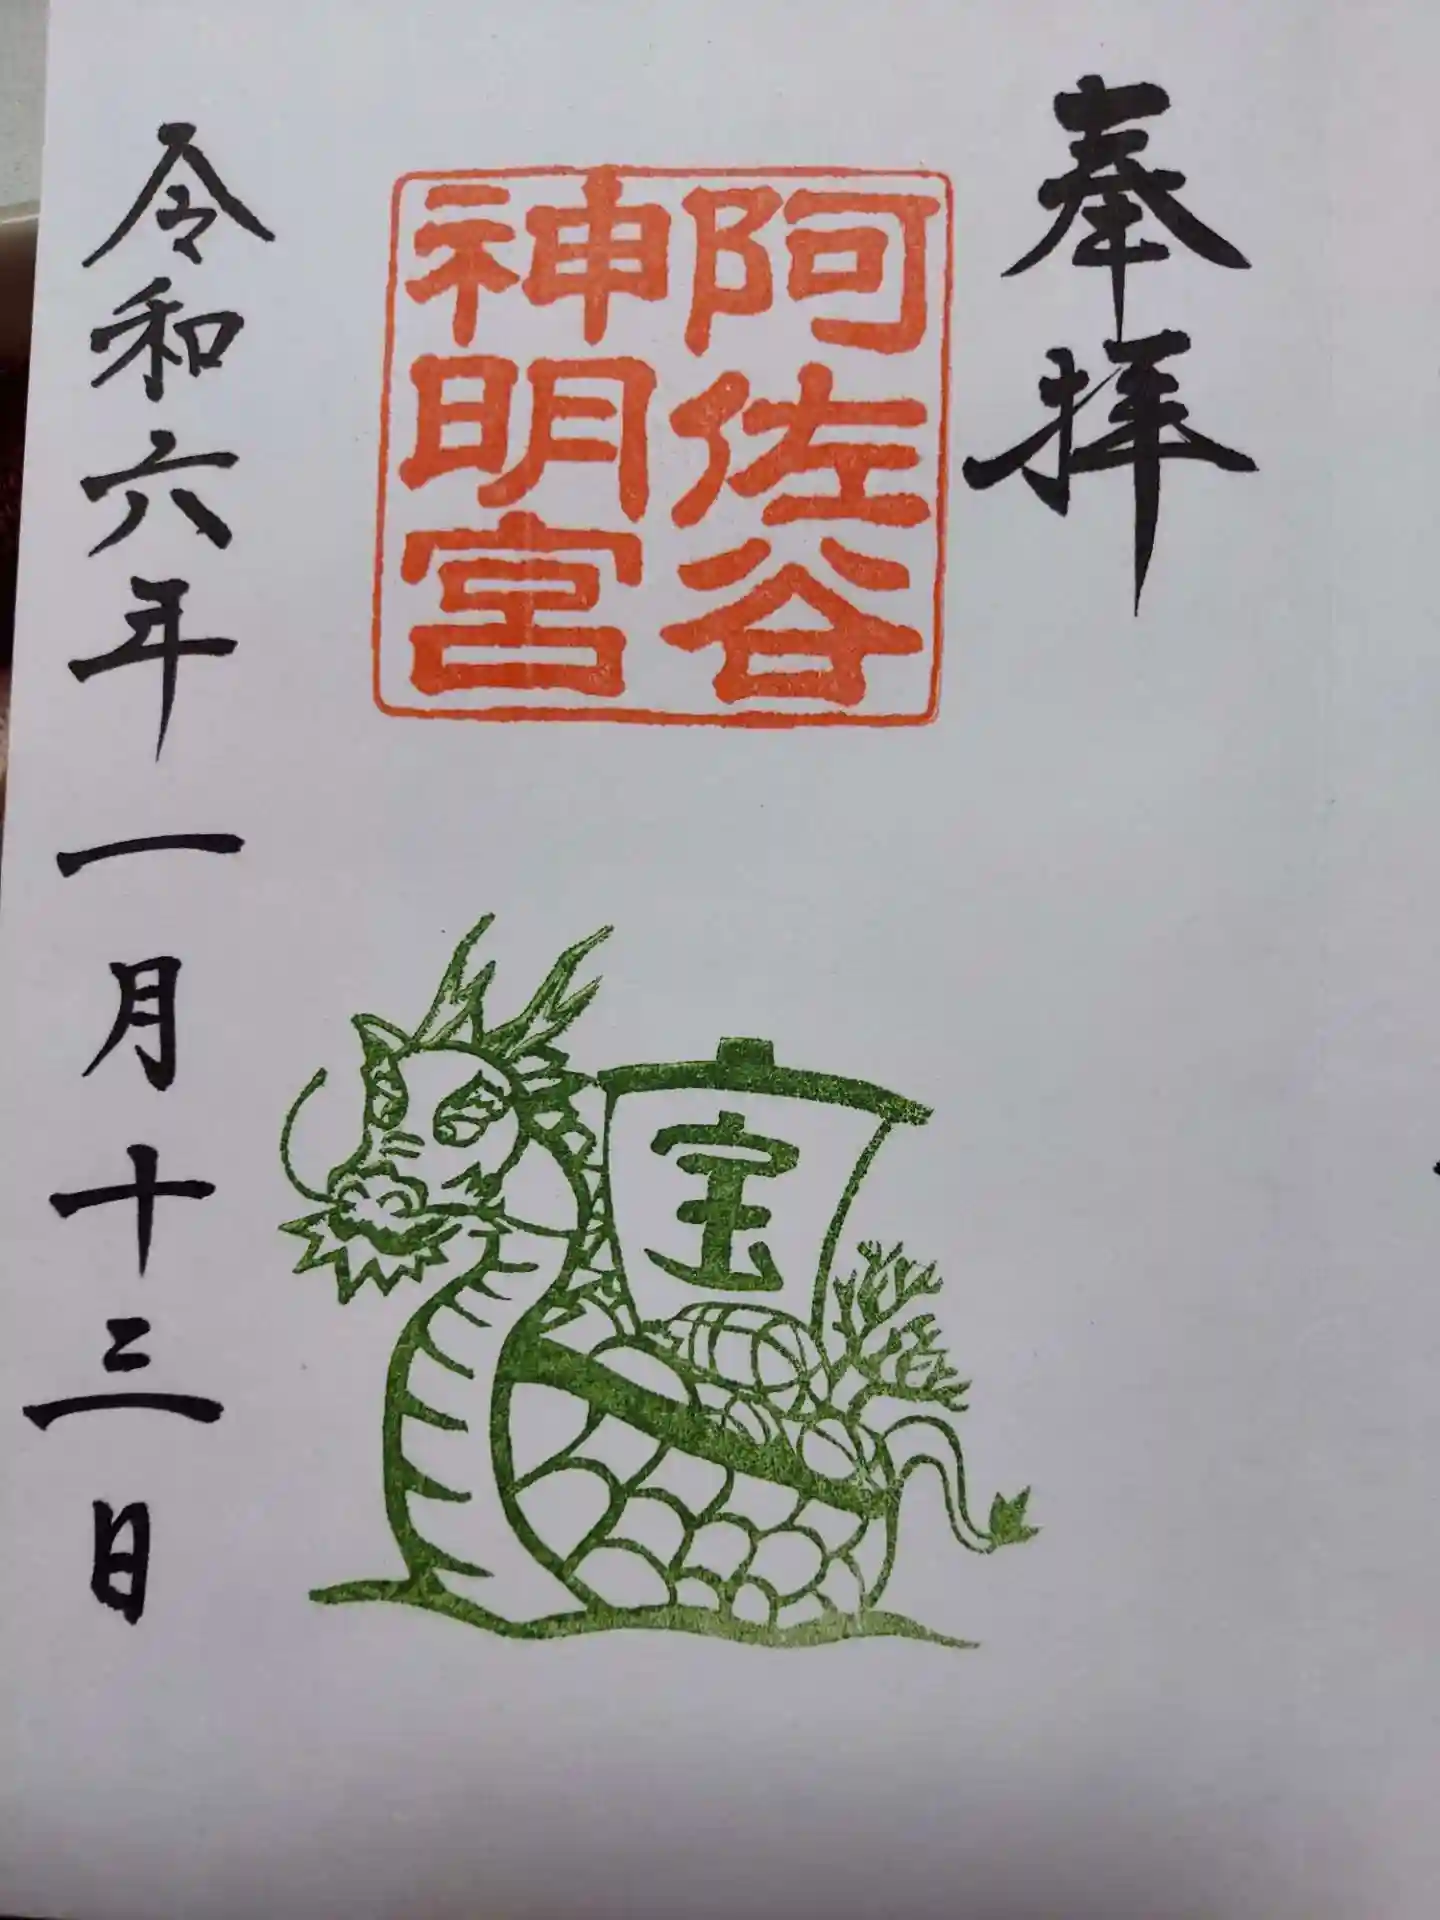 奉拝
阿佐谷
神明宮
宝
令和六年一月十三日